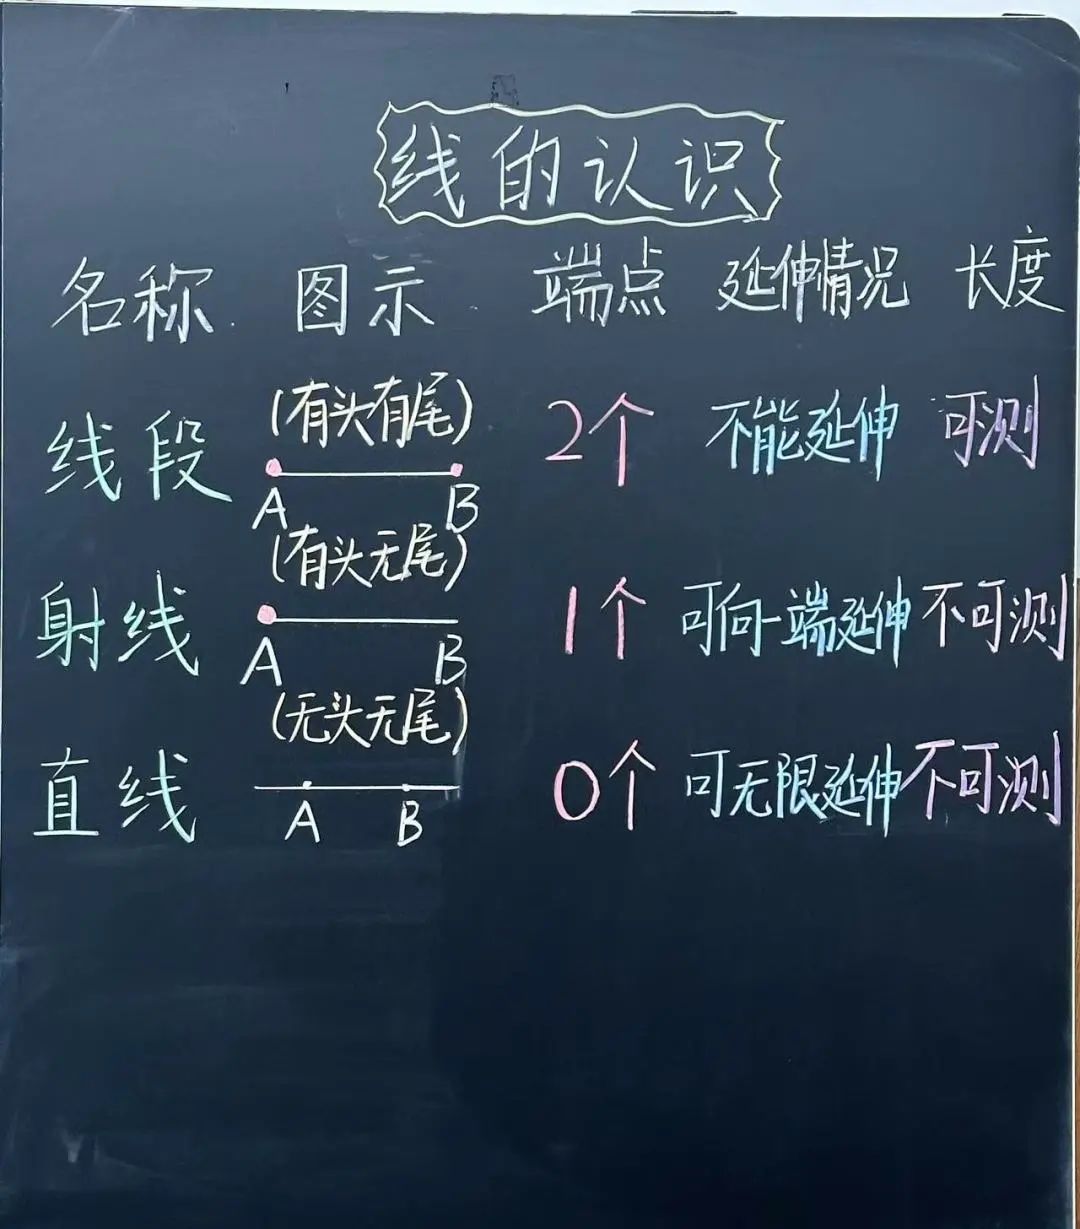 线的认识
名称 图示 端点 延伸情况 长度
(有头有尾)
线段 2个 不能延伸 可测
A B
(有头无尾)
射线 1个 可向一端延伸 不可测
A B
(无头无尾)
直线 0个 可无限延伸 不可测
A B